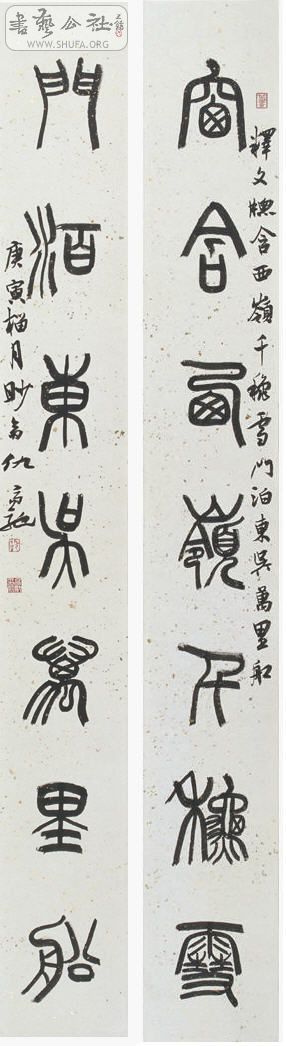 書藝公社
WWW.SHUFA.ORG
釋文牕含西嶺千穐雪門泊東吳萬里船
窗含西嶺千穐雪
門泊東吳萬里船
庚寅榴月眇翁仇高馳